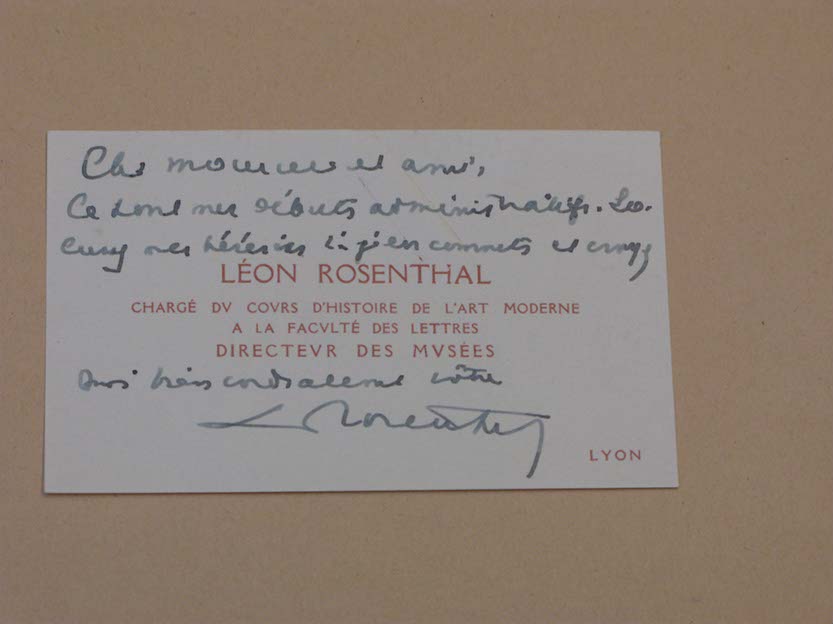 Cher monsieur et ami,
Ce sont mes débuts administratifs. Ex-
cusez mes hérésies si j'en commets et croyez
LÉON ROSENTHAL
CHARGÉ DV COVRS D'HISTOIRE DE L'ART MODERNE
A LA FACVLTÉ DES LETTRES
DIRECTEVR DES MVSÉES
moi bien cordialement vôtre
L Rosenthal
LYON